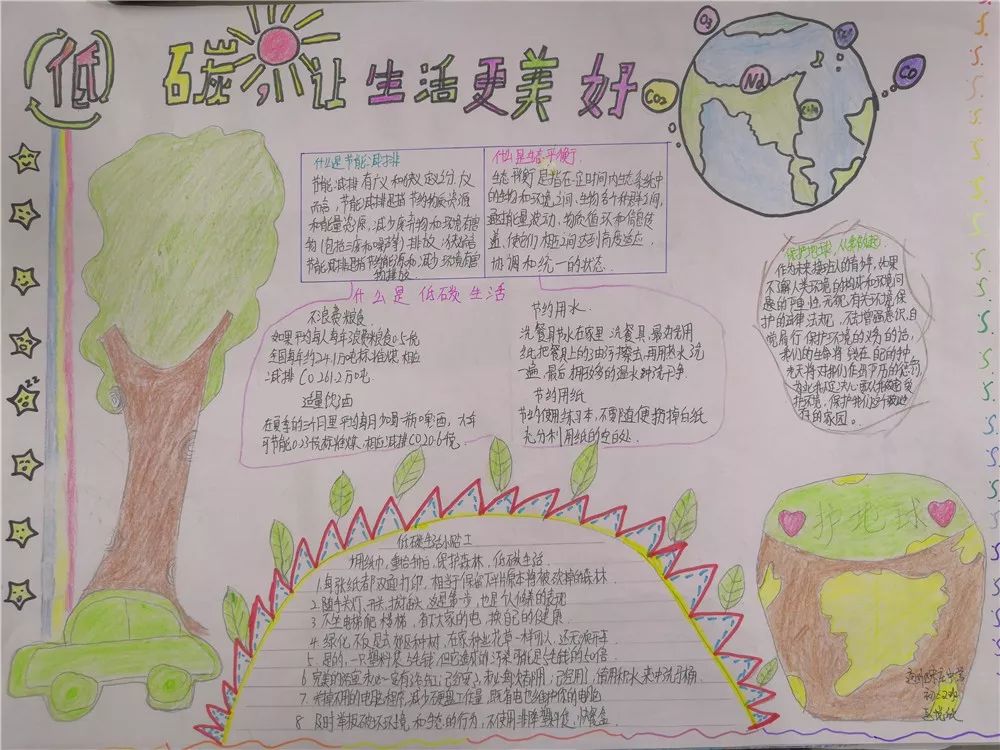 低碳，让生活更美好
O3
CO
CO2
Nd
什么是节能减排
节能减排有广义和狭义定义之分，广义
而言，节能减排是指节约物质资源
和能量资源，减少废弃物和环境有害
物（包括三废和噪声等）排放，狭义而言
节能减排是指节约能源和减少环境有害
物排放
什么是生态平衡
生态平衡是指在一定时间内生态系统中
的生物和环境之间，生物各个种群之间，
通过能量流动，物质循环和信息传
递，使它们相互之间达到高度适应．
协调和统一的状态．
什么是低碳生活
不浪费粮食
如果平均每人每年浪费粮食0.5千克
全国每年约24.1万吨标准煤，相应
减排CO261.2万吨．
适量饮酒
在夏季的三个月里平均每月
可节能0.23千克标准煤，相应减排CO20.6千克．
节约用水．
洗餐具节水在家里，洗餐具，最好先用
纸把餐具上的油污擦去，再用热水洗
一遍，最后用较多的温水冲洗干净．
节约用纸
节约使用练习本，不要随便扔掉白纸
充分利用纸的空白处．
保护地球，从我做起
作为未来接班人的青少年，如果
不了解人类环境的构成和环境问
题的严重性，无视有关环境保
护的法律法规，不去增强环境意识，自
觉履行保护环境的义务的话，
我们的生命将
护环境，保护我们这个
的家园。
低碳生活小贴士
用纸巾，重拾手帕，保护森林，低碳生活．
1.每张纸都双面打印，相当于保留下半片原本将被砍掉的森林
2.随手关灯、开关、拔插头，这是第一步，也是个人修养的表现
3.不坐电梯爬楼梯，省下大家的电，换自己的健康
4.绿化不仅是去郊区种树，在家种些花草一样可以，还无须开车
5.是的，一只塑料袋5毛钱，但它造成的污染可能是5毛钱的50倍
6.完美的浴室未必一定有浴缸；已经安了，未必每次都用，已经用了，请用积水来冲洗马桶．
7.关掉不用的电脑程序，减少硬盘工作量，既省电也维护你的电脑
8.及时举报破坏环境和生态的行为，不使用非降塑料袋，快餐盒
护地球